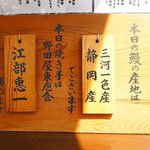 本日の鰻の産地は
三河一色産
静岡産
でございます
本日の焼き手は
野田屋東庖会
江部恵一